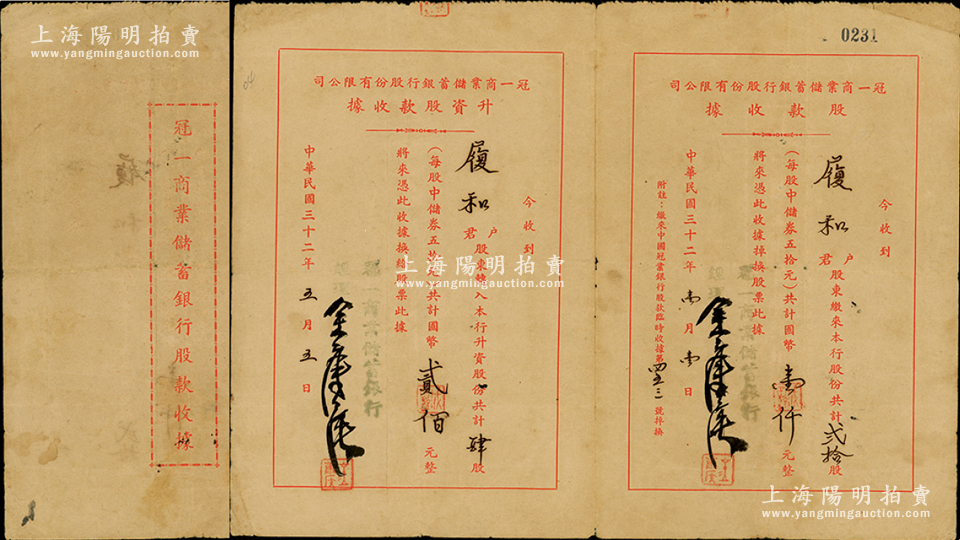 上海陽明拍賣
www.yangmingauction.com
冠一商業儲蓄銀行股款收據
冠一商業儲蓄銀行股份有限公司
升資股款收據
今收到
履和 户君 股東轉入本行升資股份共計肆股
（每股中儲券五拾元）共計國幣貳佰元整
將來憑此收據換給股票此據
中華民國三十二年五月五日
0231
冠一商業儲蓄銀行股份有限公司
股款收據
今收到
履和 户君 股東繳來本行股份共計弍拾股
（每股中儲券五拾元）共計國幣壹仟元整
將來憑此收據掉換股票此據
中華民國三十二年 月 日
附註：繳來中國冠業銀行股款臨時收據第 號掉換
冠一商業儲蓄銀行
冠一商業儲蓄銀行
上海陽明拍賣
www.yangmingauction.com
上海陽明拍賣
www.yangmingauction.com